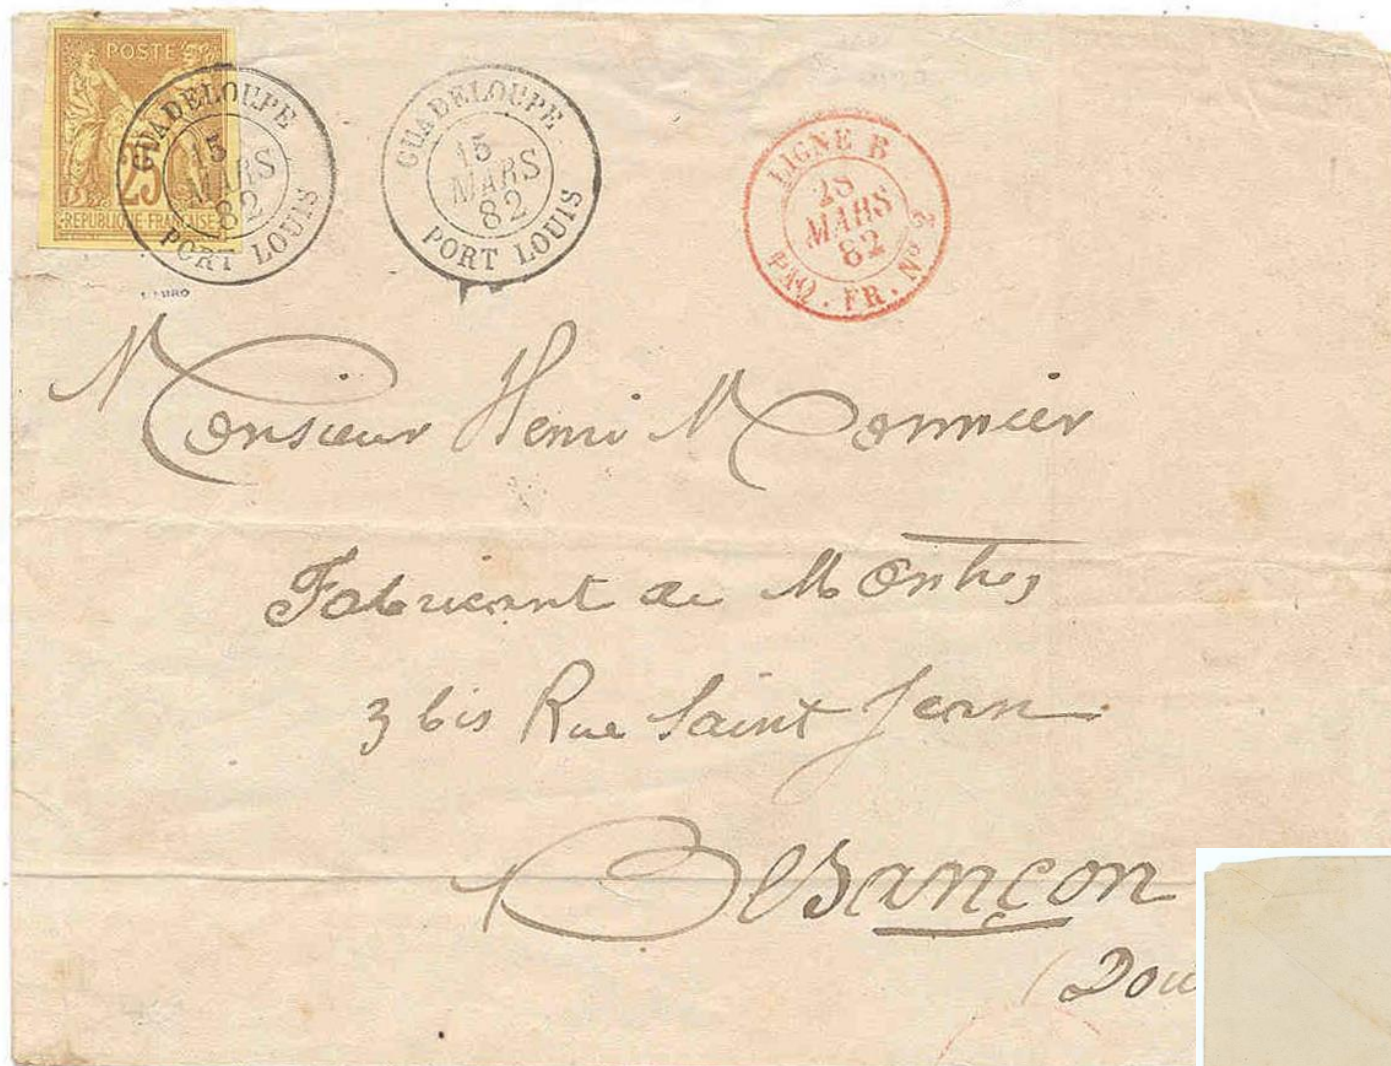 POSTE
25
REPUBLIQUE FRANCAISE
GUADELOUPE
15
MARS
82
PORT LOUIS
GUADELOUPE
15
MARS
82
PORT LOUIS
LIGNE B
28
MARS
82
PAQ. FR. N° 2
Monsieur Henri Monnier
Fabricant de Montres
3 bis Rue Saint Jean
Besançon
(Dou